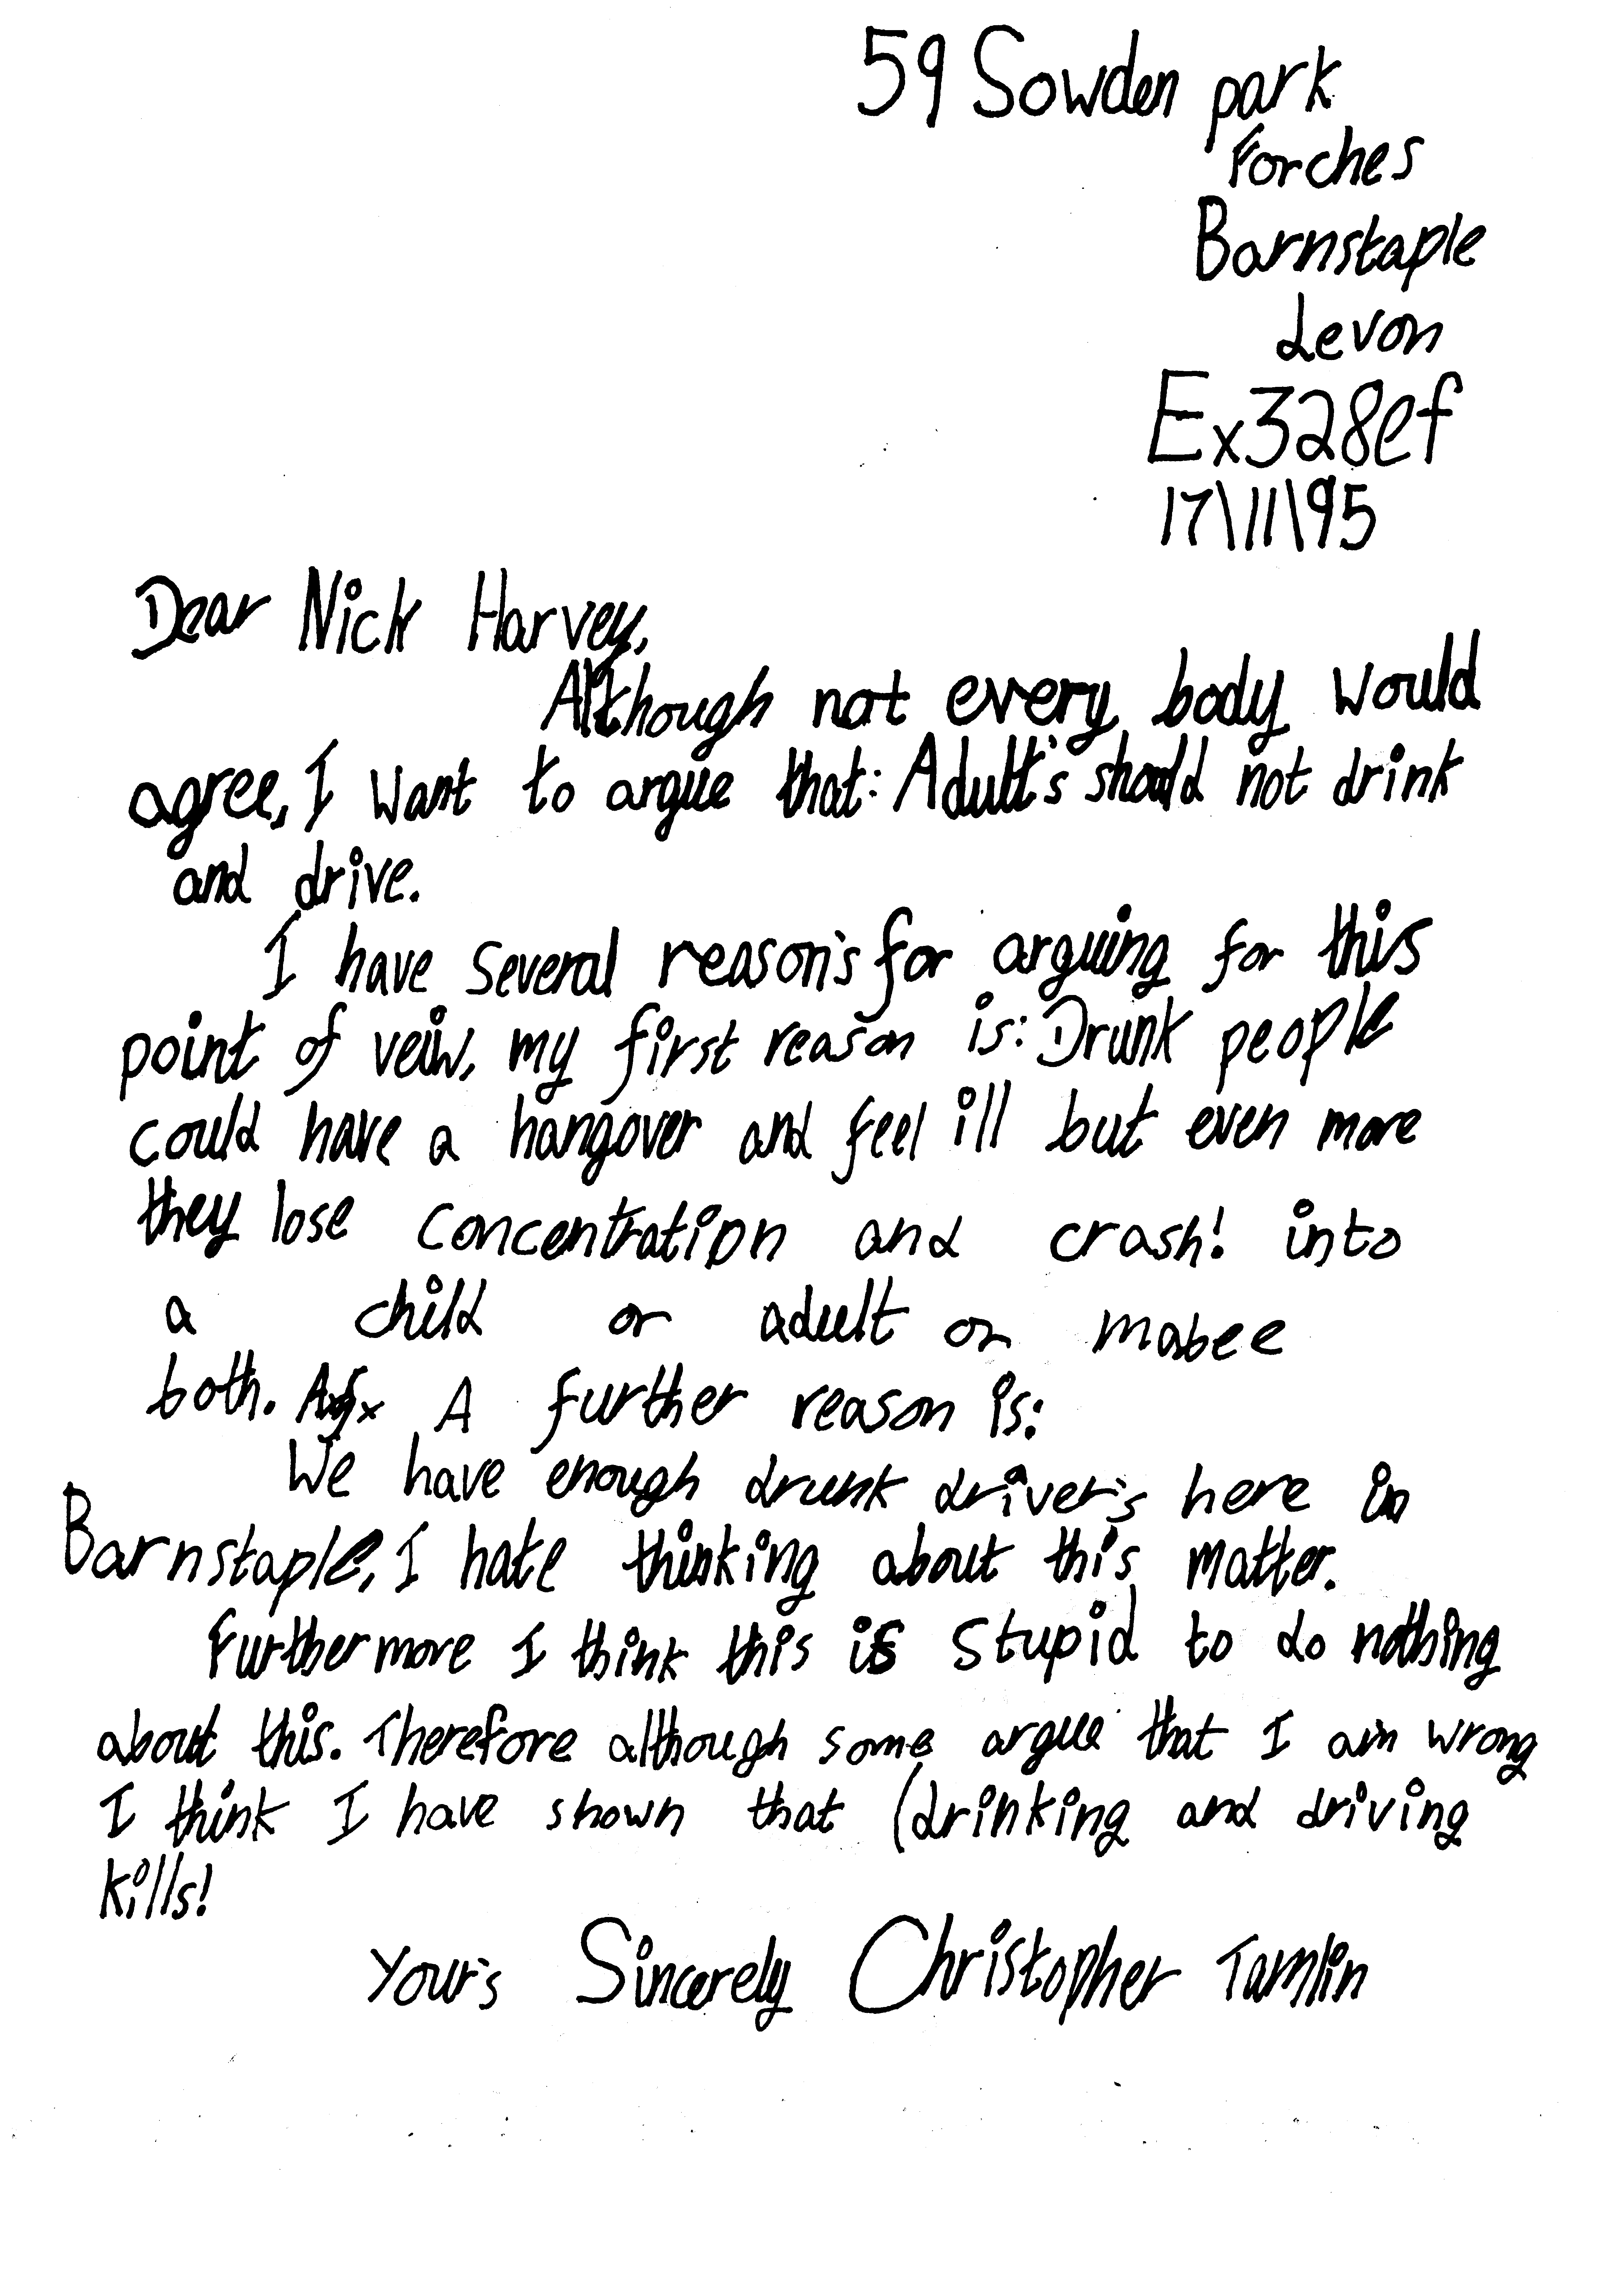 59 Sowden park
Forches
Barnstaple
devon
Ex328ef
17\11\95
Dear Nick Harvey,
Although not every body would
agree, I want to argue that: Adult's should not drink
and drive.
I have several reason's for arguing for this
point of veiw, my first reason is: Drunk people
could have a hangover and feel ill but even more
they lose concentration and crash! into
a child or adult or mabee
both. A further reason is:
We have enough drunk driver's here in
Barnstaple, I hate thinking about this matter.
Furthermore I think this is stupid to do nothing
about this. Therefore although some argue that I am wrong
I think I have shown that (drinking and driving
kills!
Your's Sincerely Christopher Tamlin